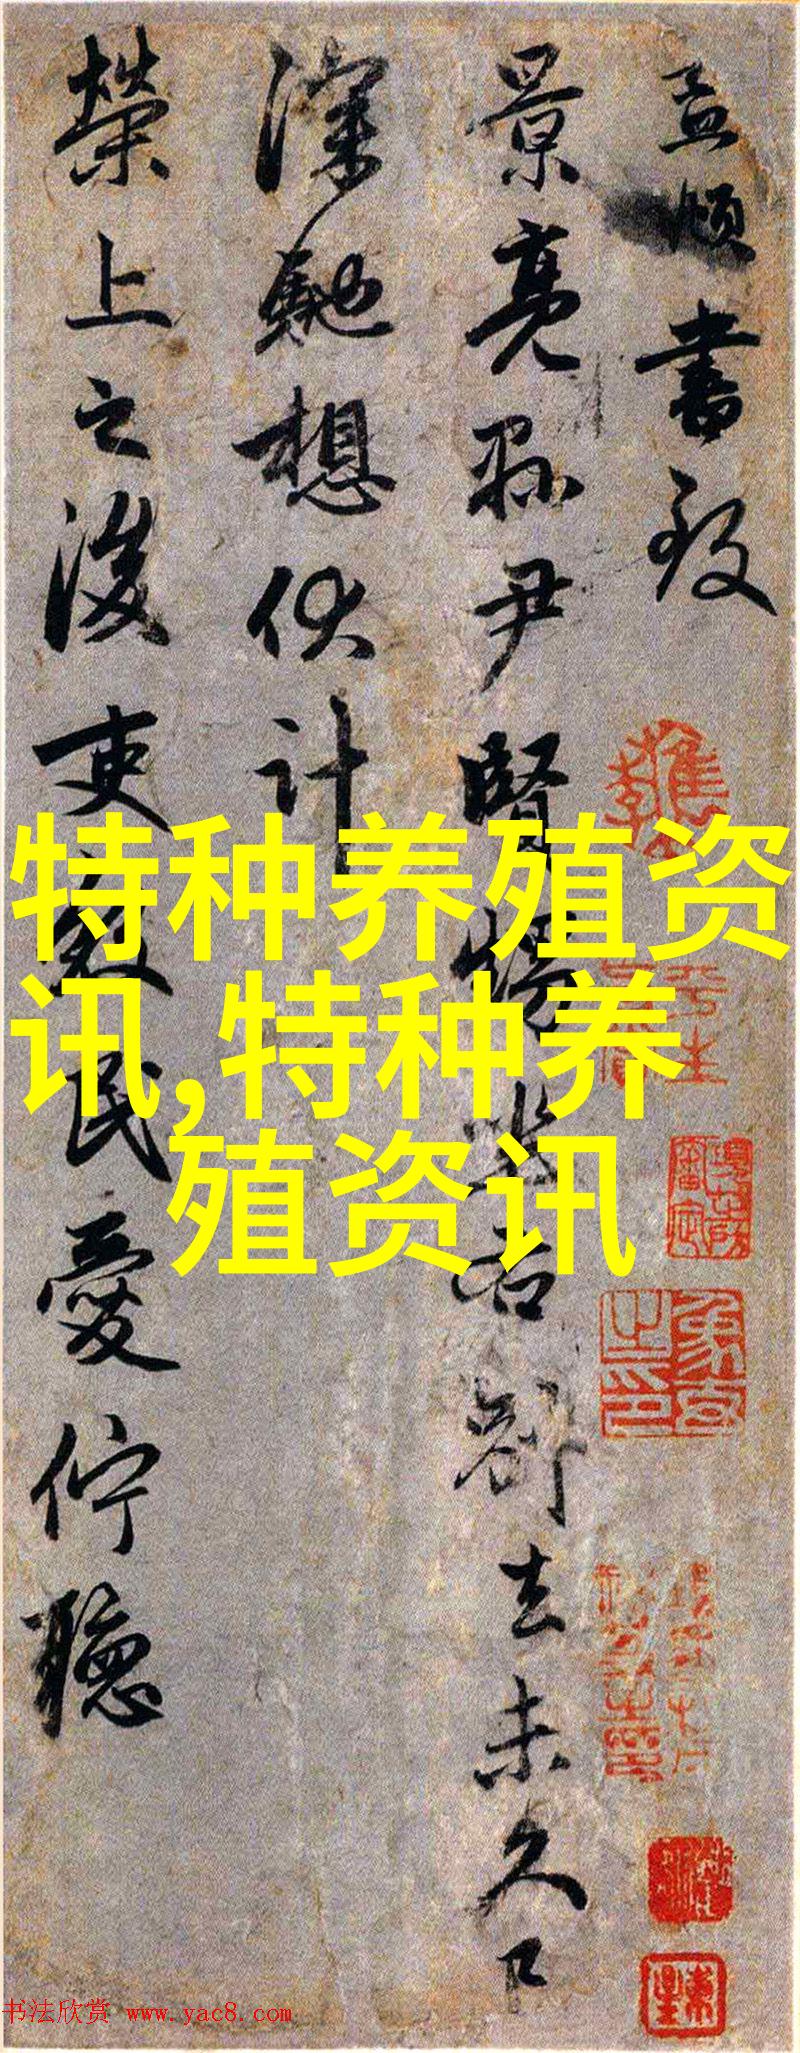 孟頫書致
景亮縣尹賢
去未久
深馳想伏計
榮上之後吏
民愛佇聽
特种养殖资
讯,特种养
殖资讯
书法欣赏 www.yac8.com